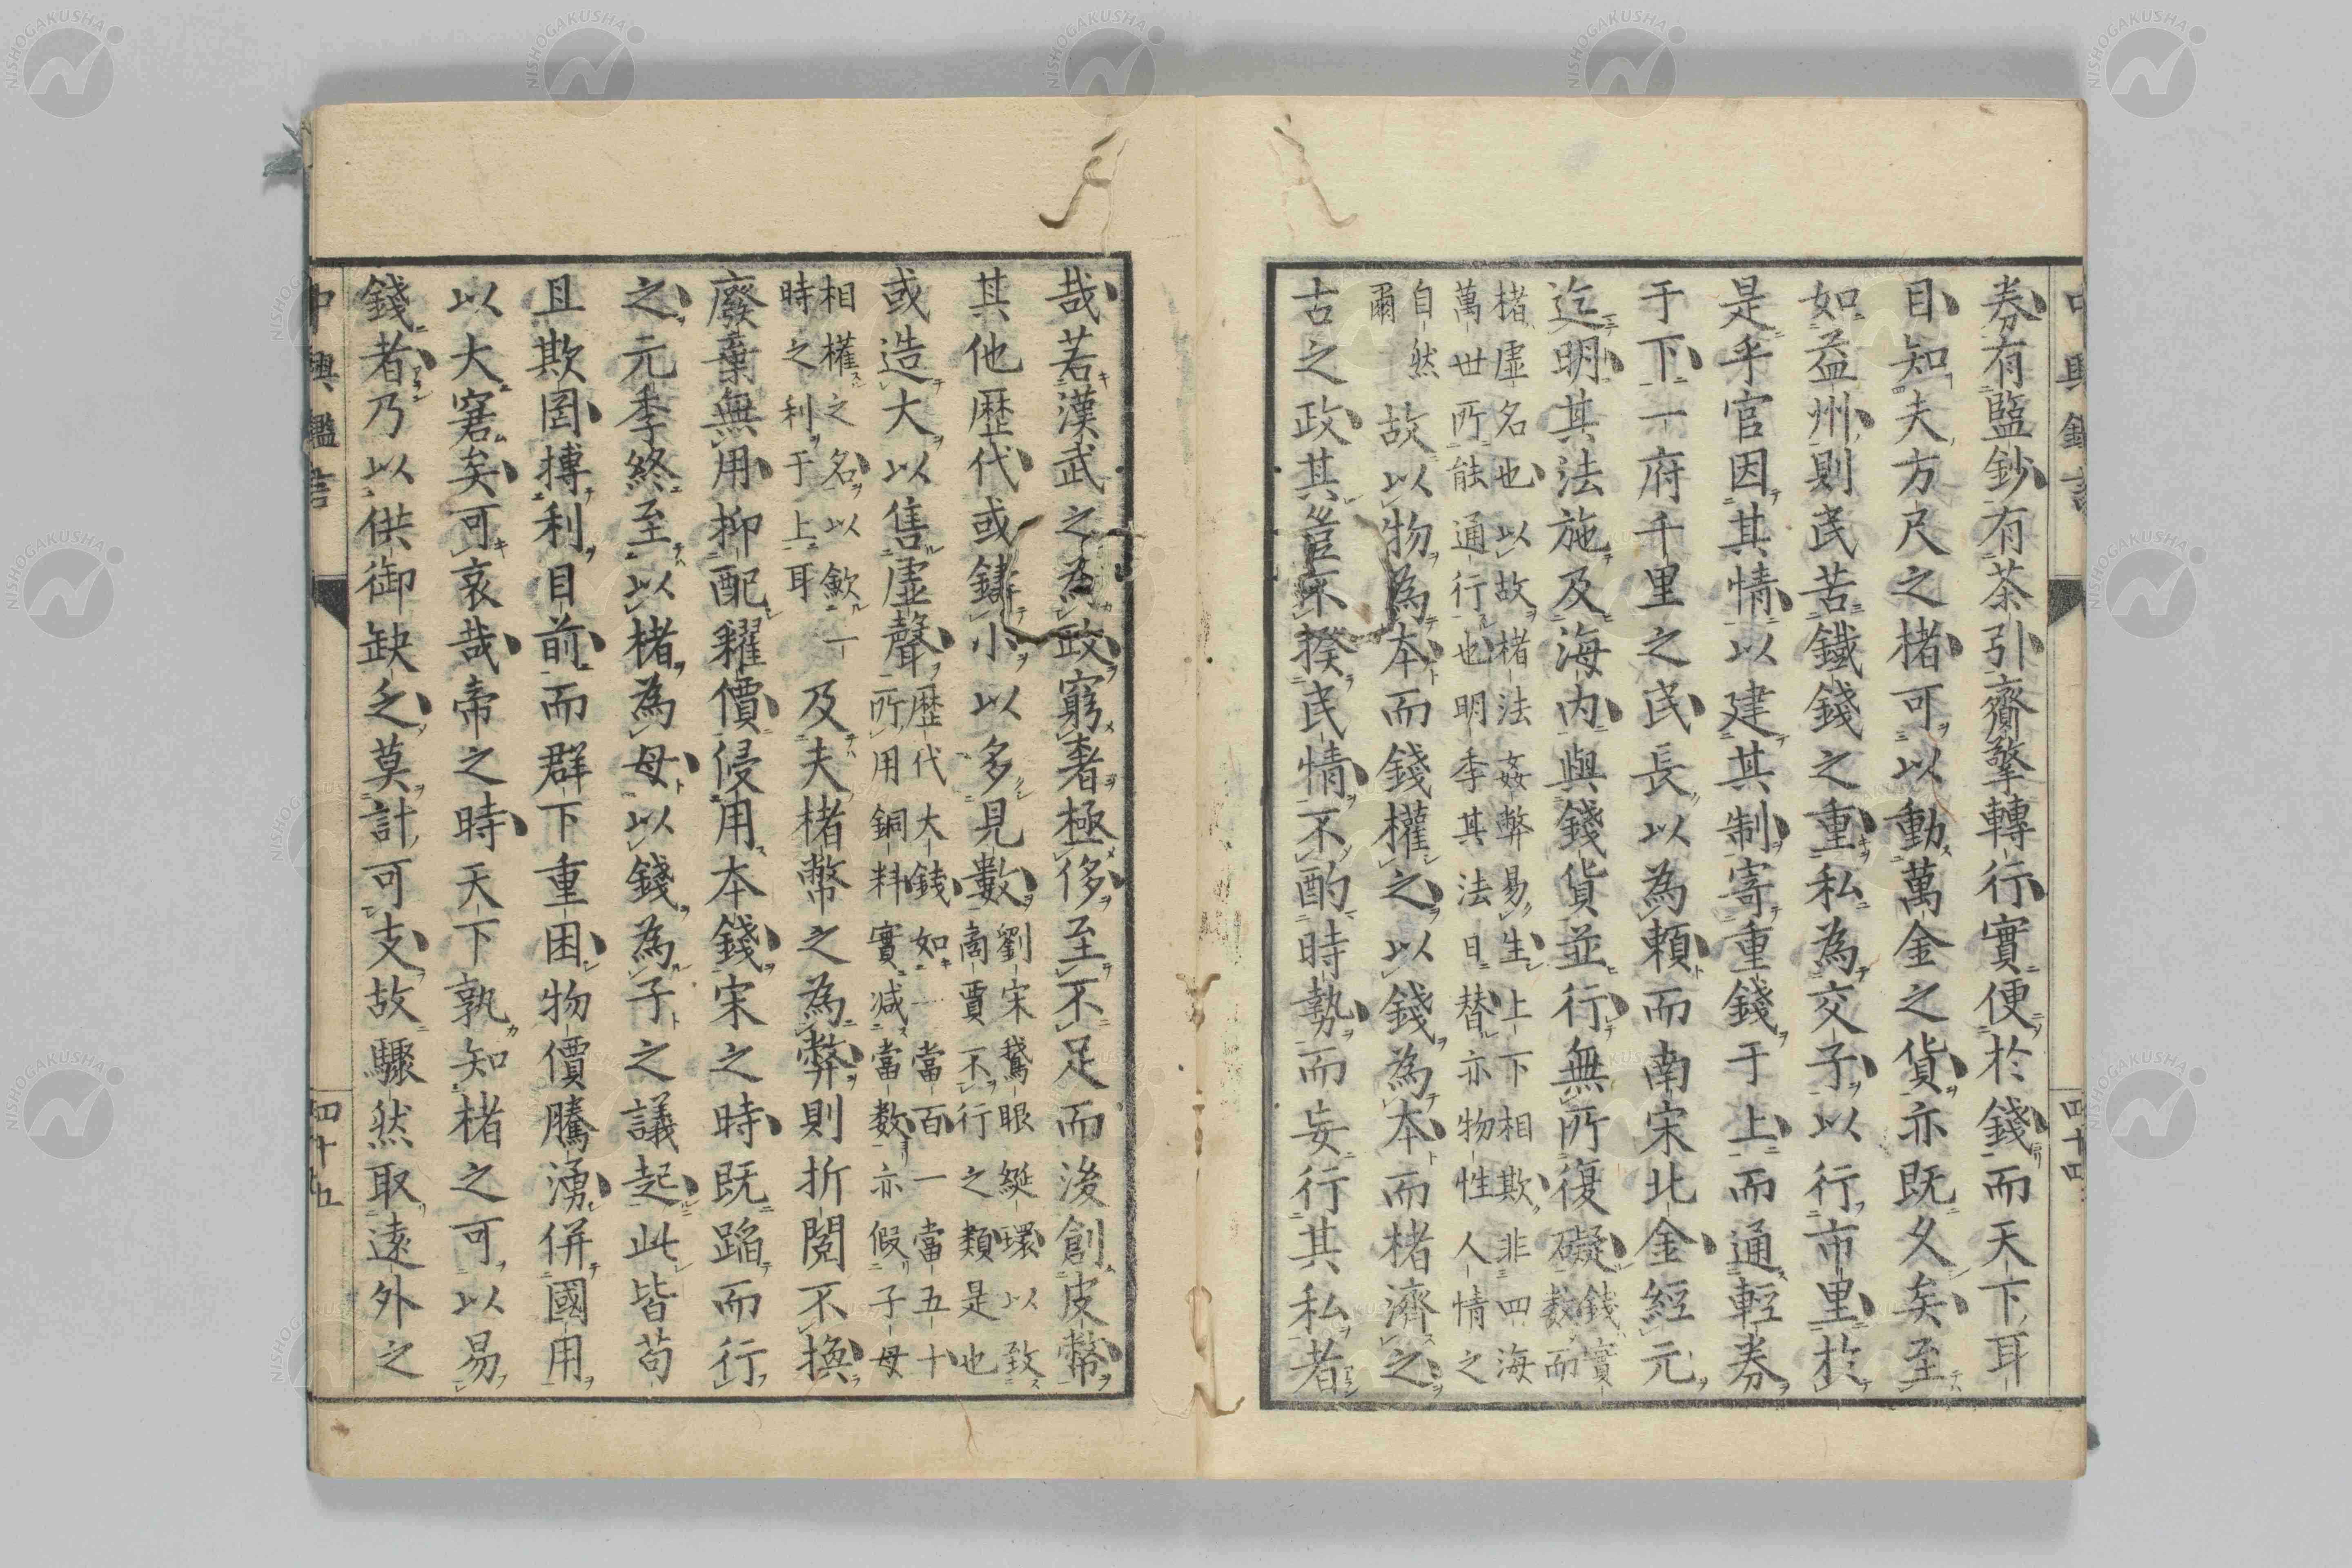 券有鹽鈔有茶引齎擎轉行實便於錢而天下耳
目知夫方尺之楮可以動萬金之貨亦既久矣至
如益州則民苦鐵錢之重私為交子以行市里於
是乎官因其情以建其制寄重錢于上而通輕券
于下一府千里之民長以為賴而南宋北金經元
迄明其法施及海內與錢貨並行無所復礙錢實數而
楮虛名也以故楮法姦弊易生上下相欺非四海
萬世所能通行也明季其法日替亦物性人情之
自然
爾
故以物為本而錢權之以錢為本而楮濟之
古之政其豈不揆民情不酌時勢而妄行其私者
中興鑑言
四十四
哉若漢武之為政窮奢極侈至不足而後創皮幣
其他歷代或鑄小以多見數劉宋鵝眼綖環以致
商賈不行之類是也
或造大以售虛聲歷代大錢如一當百一當五十
所用銅料實減當數亦假子母
相權之名以歛一
時之利于上耳
及夫楮幣之為弊則折閱不換
廢棄無用抑配糴價侵用本錢宋之時既蹈而行
之元季終至以楮為母以錢為子之議起此皆苟
且欺罔摶利目前而群下重困物價騰湧併國用
以大窘矣可哀哉帝之時天下孰知楮之可以易
錢者乃以供御缺乏莫計可支故驟然取遠外之
中興鑑言
四十五
NISHOGAKUSHA